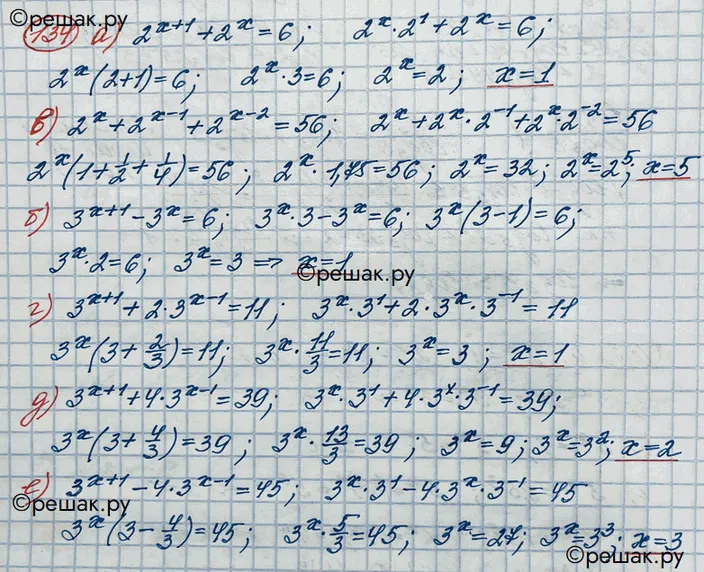 ©решак.ру
134 а) 2^{x+1} + 2^x = 6; 2^x · 2^1 + 2^x = 6;
2^x (2+1) = 6; 2^x · 3 = 6; 2^x = 2; x = 1
в) 2^x + 2^{x-1} + 2^{x-2} = 56; 2^x + 2^x · 2^{-1} + 2^x · 2^{-2} = 56
2^x (1 + 1/2 + 1/4) = 56; 2^x · 1,75 = 56; 2^x = 32; 2^x = 2^5; x = 5
б) 3^{x+1} - 3^x = 6; 3^x · 3 - 3^x = 6; 3^x (3-1) = 6;
3^x · 2 = 6; 3^x = 3 => x = 1
©решак.ру
г) 3^{x+1} + 2 · 3^{x-1} = 11; 3^x · 3^1 + 2 · 3^x · 3^{-1} = 11
3^x (3 + 2/3) = 11; 3^x · 11/3 = 11; 3^x = 3; x = 1
д) 3^{x+1} + 4 · 3^{x-1} = 39; 3^x · 3^1 + 4 · 3^x · 3^{-1} = 39;
3^x (3 + 4/3) = 39; 3^x · 13/3 = 39; 3^x = 9; 3^x = 3^2; x = 2
е) 3^{x+1} - 4 · 3^{x-1} = 45; 3^x · 3^1 - 4 · 3^x · 3^{-1} = 45
©решак.ру
3^x (3 - 4/3) = 45; 3^x · 5/3 = 45; 3^x = 27; 3^x = 3^3; x = 3
©решак.ру